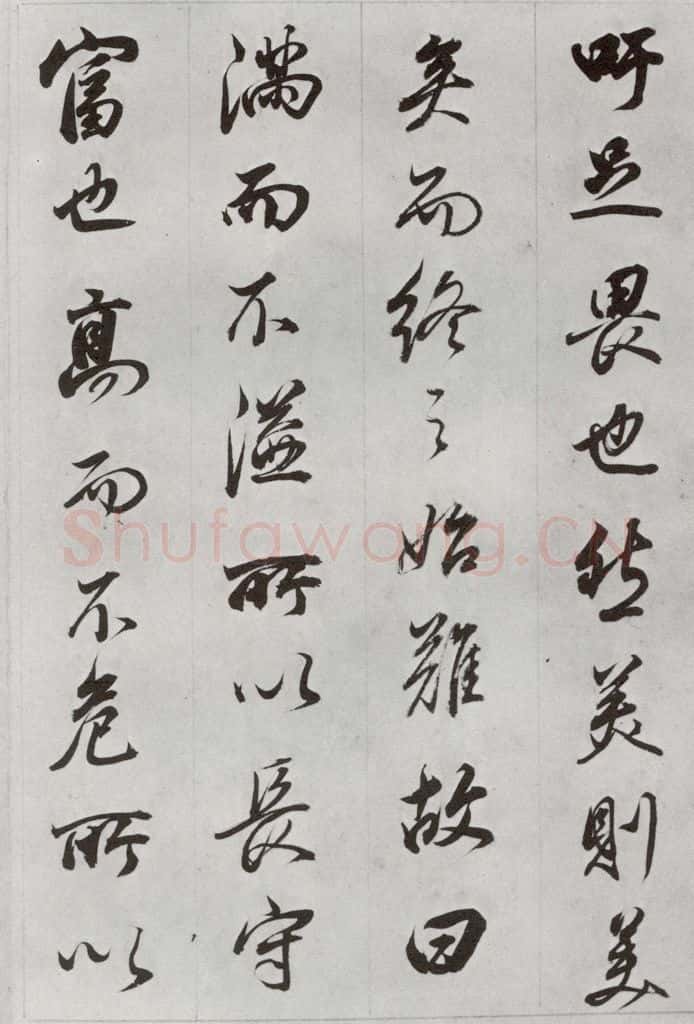 吁足畏也然美則美
矣而終之始難故曰
滿而不溢所以長守
富也高而不危所以
Shufawang.CN